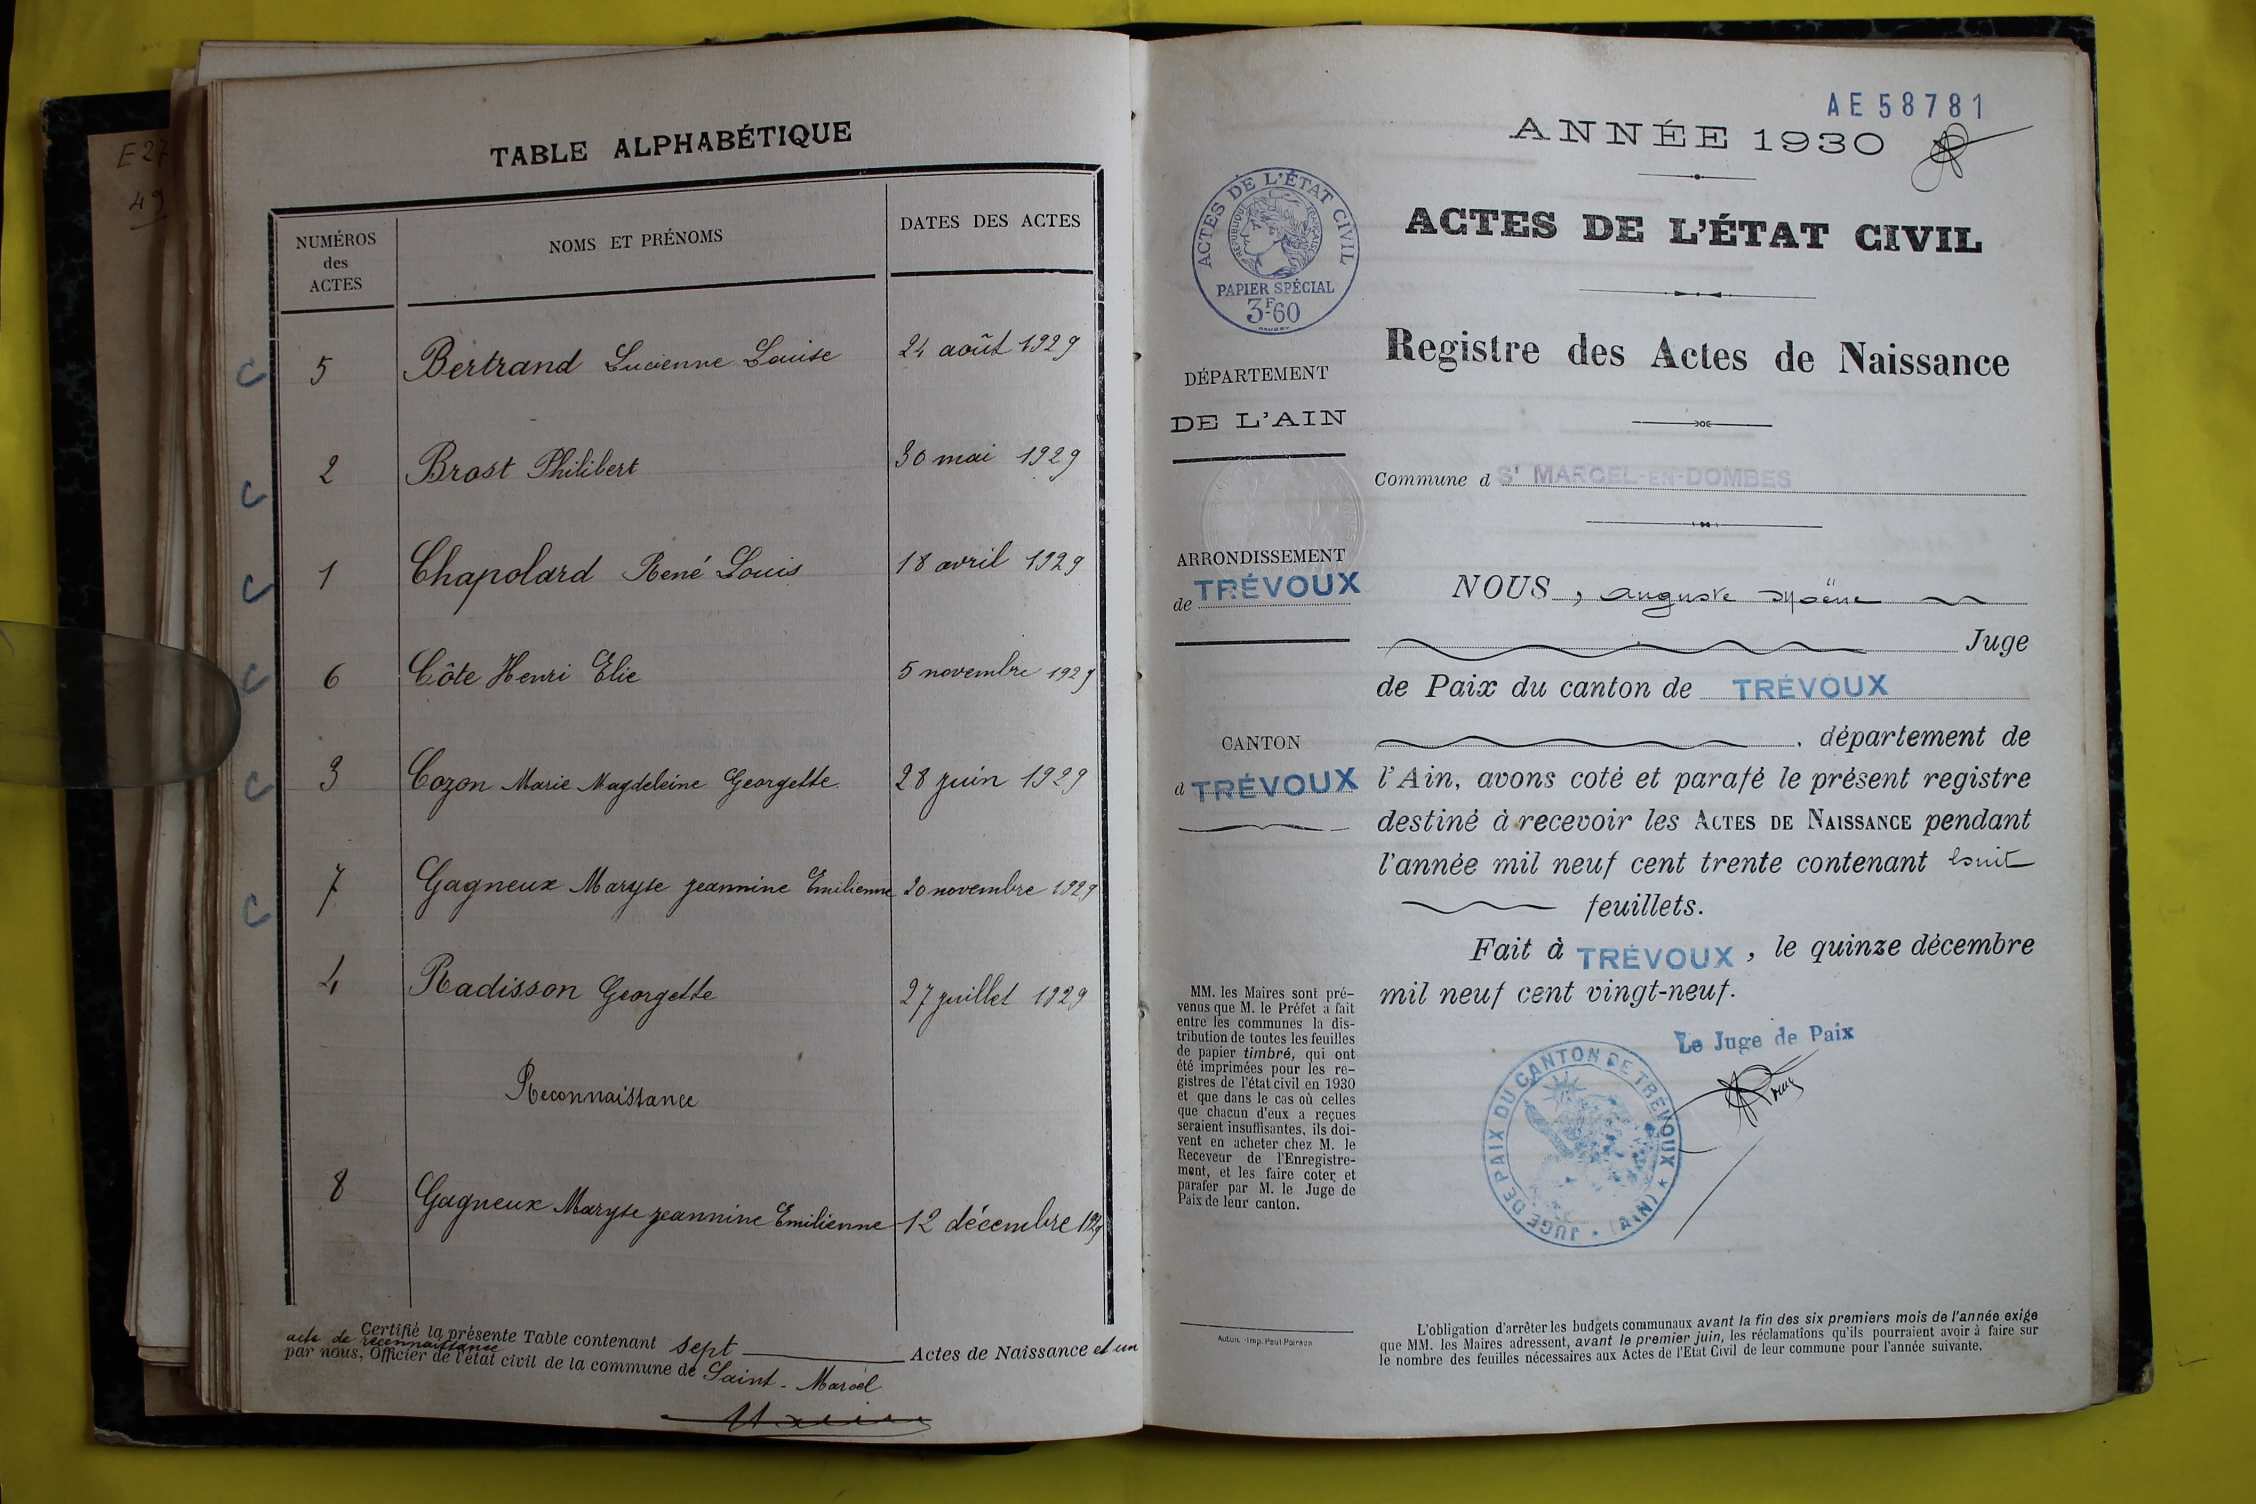 E 27
49
TABLE ALPHABÉTIQUE
NUMÉROS des ACTES
NOMS ET PRÉNOMS
DATES DES ACTES
5 Bertrand Lucienne Louise 24 août 1929
2 Brost Philibert 30 mai 1929
1 Chapolard René Louis 18 avril 1929
6 Côte Henri Elie 5 novembre 1929
3 Cozon Marie Magdeleine Georgette 28 juin 1929
7 Gagneux Maryse Jeannine Emilienne 20 novembre 1929
4 Radisson Georgette 27 juillet 1929
Reconnaissance
8 Gagneux Maryse Jeannine Emilienne 12 décembre 1929
Certifié la présente Table contenant sept Actes de Naissance et un
acte de reconnaissance
par nous, Officier de l'état civil de la commune de Saint-Marcel
AE 58781
ANNÉE 1930
ACTES DE L'ÉTAT CIVIL
RÉPUBLIQUE FRANÇAISE
PAPIER SPÉCIAL
3F60
ACTES DE L'ÉTAT CIVIL
Registre des Actes de Naissance
DÉPARTEMENT
DE L'AIN
Commune d St MARCEL-EN-DOMBES
ARRONDISSEMENT
de TRÉVOUX
CANTON
d TRÉVOUX
NOUS, Auguste
Juge
de Paix du canton de TRÉVOUX
, département de
l'Ain, avons coté et parafé le présent registre
destiné à recevoir les ACTES DE NAISSANCE pendant
l'année mil neuf cent trente contenant huit
feuillets.
Fait à TRÉVOUX, le quinze décembre
mil neuf cent vingt-neuf.
Le Juge de Paix
JUGE DE PAIX DU CANTON DE TRÉVOUX * (AIN) *
MM. les Maires sont pré-
venus que M. le Préfet a fait
entre les communes la dis-
tribution de toutes les feuilles
de papier timbré, qui ont
été imprimées pour les re-
gistres de l'état civil en 1930
et que dans le cas où celles
que chacun d'eux a reçues
seraient insuffisantes, ils doi-
vent en acheter chez M. le
Receveur de l'Enregistre-
ment, et les faire coter et
parafer par M. le Juge de
Paix de leur canton.
Autun. - Imp. Paul Poirson
L'obligation d'arrêter les budgets communaux avant la fin des six premiers mois de l'année exige
que MM. les Maires adressent, avant le premier juin, les réclamations qu'ils pourraient avoir à faire sur
le nombre des feuilles nécessaires aux Actes de l'Etat Civil de leur commune pour l'année suivante.